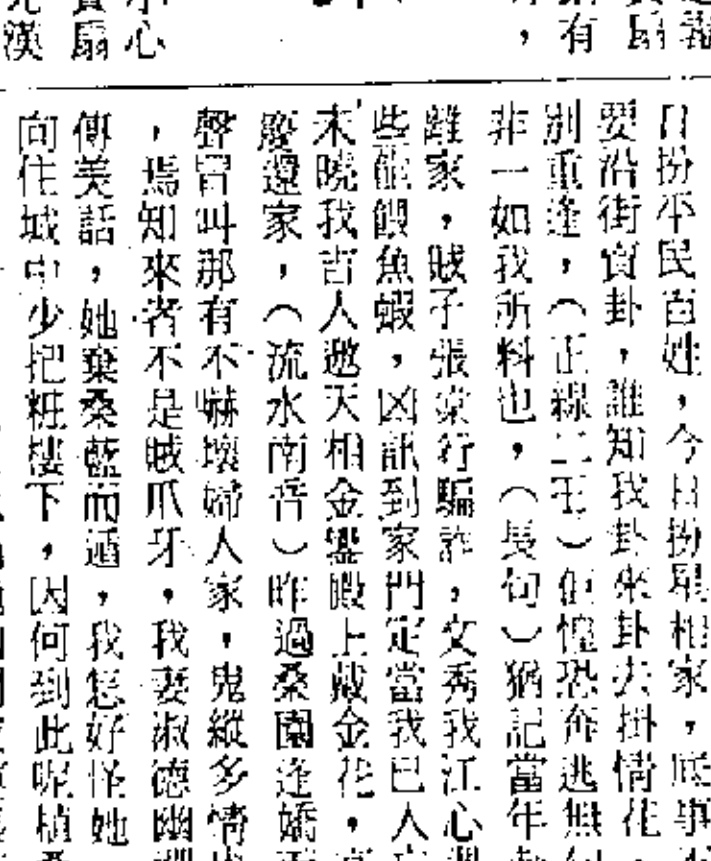 有
，
心
扇
漢
日扮平民百姓，今日扮星相家，底事
要沿街賣卦，誰知我卦來卦去掛情花
別重逢，（正線二王）佢惶恐奔逃無
非一如我所料也，（長句）猶記當年
離家，賊子張棠行騙詐，文秀我江心
些餵魚蝦，凶訊到家門定當我已人
未曉我吉人邀天相金鑾殿上戴金花，
慶還家，（流水南音）昨過桑園逢嬌
聲冒叫那有不嚇壞婦人家，鬼縱多情
，焉知來者不是賊爪牙，我妻淑德幽
傳美話，她棄桑籃而遁，我怎好怪她
向住城中少把粧樓下，因何到此呢植